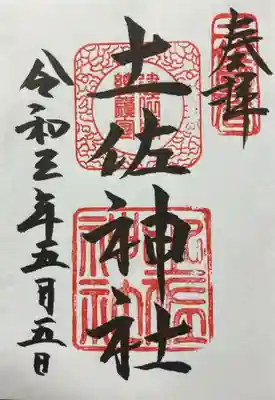 奉拝
土佐神社
令和三年五月五日